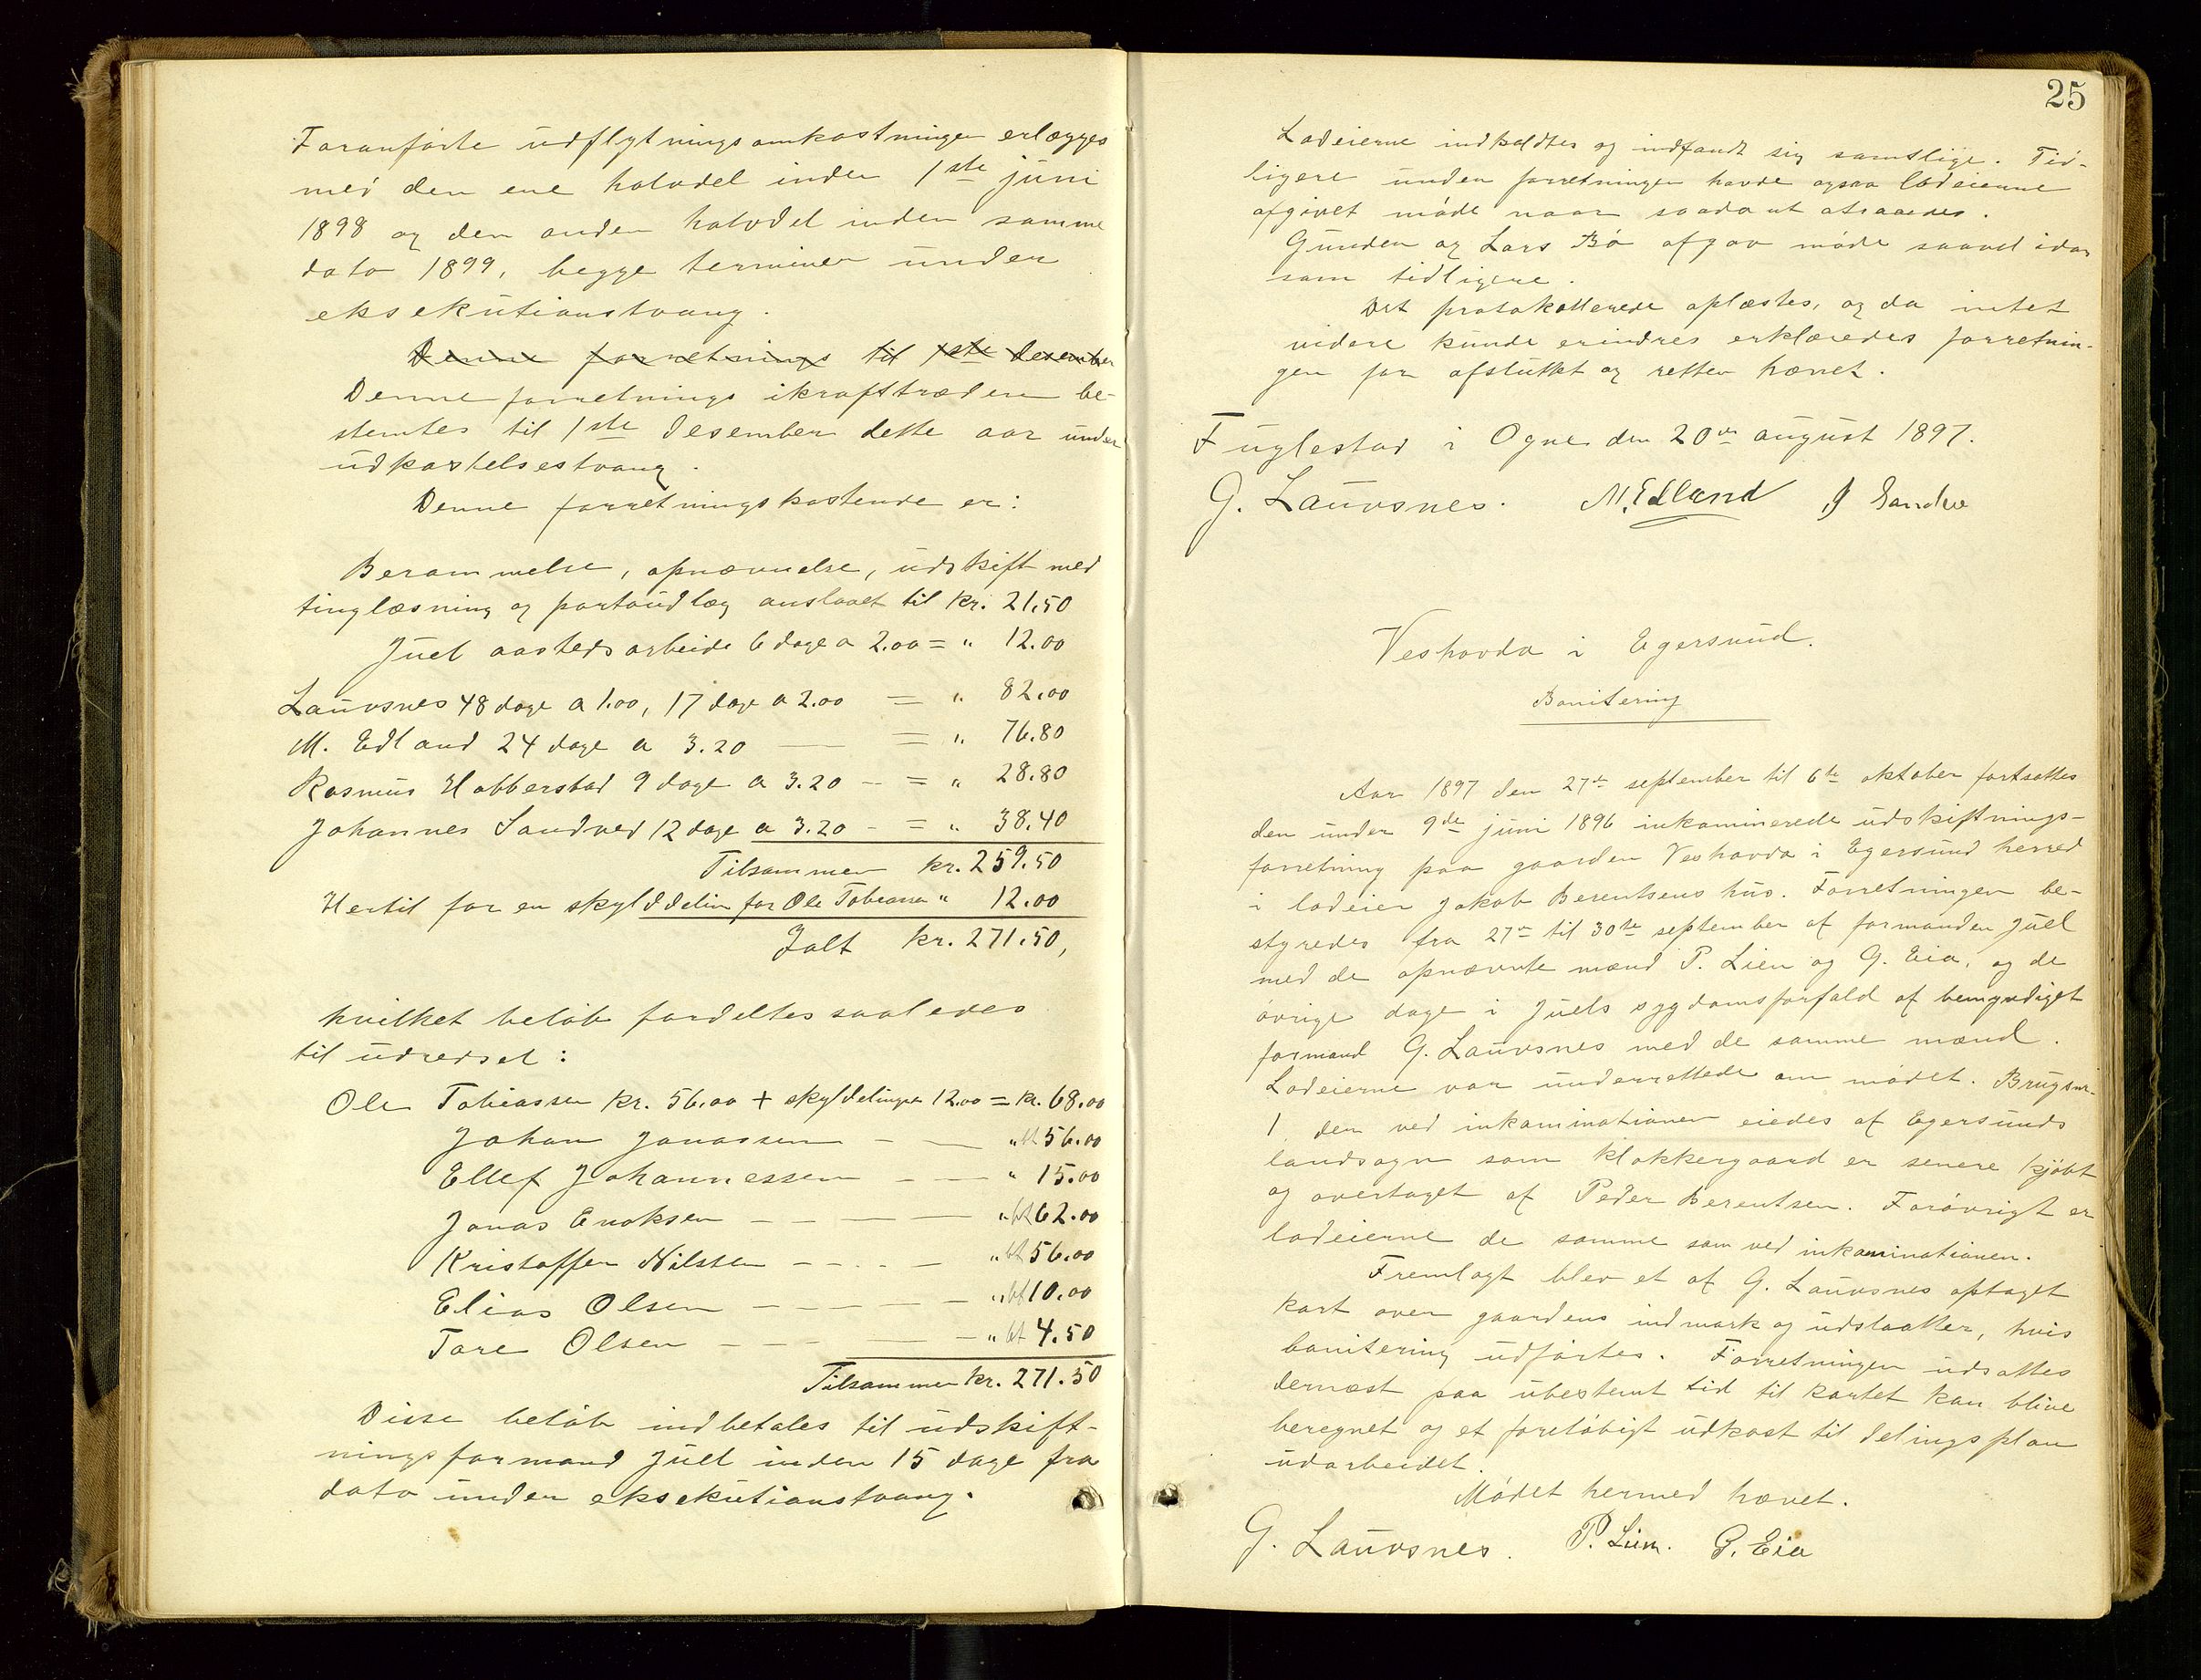 Foranførte udflytningsomkostninger erlægges
med den ene halvdel inden 1ste juni
1898 og den anden halvdel inden samme
dato 1899, begge terminer under
eksekutionstvang.
Denne forretnings til 1ste desember
Denne forretnings ikrafttræden be-
stemtes til 1ste desember dette aar under
udkastelsestvang.
Denne forretnings kostende er:
Berammelse, opnævnelse, udskift med
tinglæsning og portoudlæg anslaaet til kr. 21.50
Juel aastedsarbeide 6 dage a 2.00 = " 12.00
Lauvsnes 48 dage a 1.00, 17 dage a 2.00 = " 82.00
M. Edland 24 dage a 3.20 — = " 76.80
Rasmus Habberstad 9 dage a 3.20 -- = " 28.80
Johannes Sandved 12 dage a 3.20 - = " 38.40
Tilsammen kr. 259.50
Hertil for en skylddelin for Ole Tobiassen " 12.00
Ialt kr. 271.50,
hvilket beløb fordeltes saaledes
til udredsel:
Ole Tobiassen kr. 56.00 + skyldelingen 12.00 = kr. 68.00
Johan Jonassen - — " bt 56.00
Ellef Johannessen - — " 15.00
Jonas Enoksen - - — — " bt 62.00
Kristoffer Nilsen - - . - — " bt 56.00
Elias Olsen - - - — - " bt 10.00
Tore Olsen - - - — - " bt 4.50
Tilsammen kr. 271.50
Disse beløb indbetales til udskift-
ningsformand Juel inden 15 dage fra
dato under eksekutionstvang.
25
Lodeierne indkaldtes og indfandt sig samtlige. Tid-
ligere under forretningen havde ogsaa lodeierne
afgivet møde naar saadant atraaedes.
Gunder og Lars Bø afgav møde saavel idag
som tidligere.
Det protokollerede oplæstes, og da intet
videre kunde erindres erklæredes forretnin-
gen for afsluttet og retten hævet.
Fuglestad i Ogne den 20de august 1897.
G. Lauvsnes. M. Edland J Sandve
Veshovda i Egersund.
Bonitering
Aar 1897 den 27de september til 6te oktober fortsattes
den under 9de juni 1896 inkaminerede udskiftnings-
forretning paa gaarden Veshovda i Egersund herred
i lodeier Jakob Berentsens hus. Forretningen be-
styredes fra 27de til 30te september af formanden Juel
med de opnævnte mænd P. Lien og G. Eia, og de
øvrige dage i Juels sygdomsforfald af bemyndiget
formand G. Lauvsnes med de samme mænd.
Lodeierne var underrettede om mødet. Brugsnr.
1 der ved inkaminationen eiedes af Egersunds
landsogn som klokkergaard er senere kjøbt
og overtaget af Peder Berentsen. Forøvrigt er
lodeierne de samme som ved inkaminationen.
Fremlagt blev et af G. Lauvsnes optaget
kart over gaardens indmark og udslaatter, hvis
bonitering udførtes. Forretningen udsattes
dernæst paa ubestemt tid til kartet kan blive
beregnet og et foreløbigt udkast til delingsplan
udarbeidet.
Mødet hermed hævet.
G. Lauvsnes. P. Lien. G. Eia